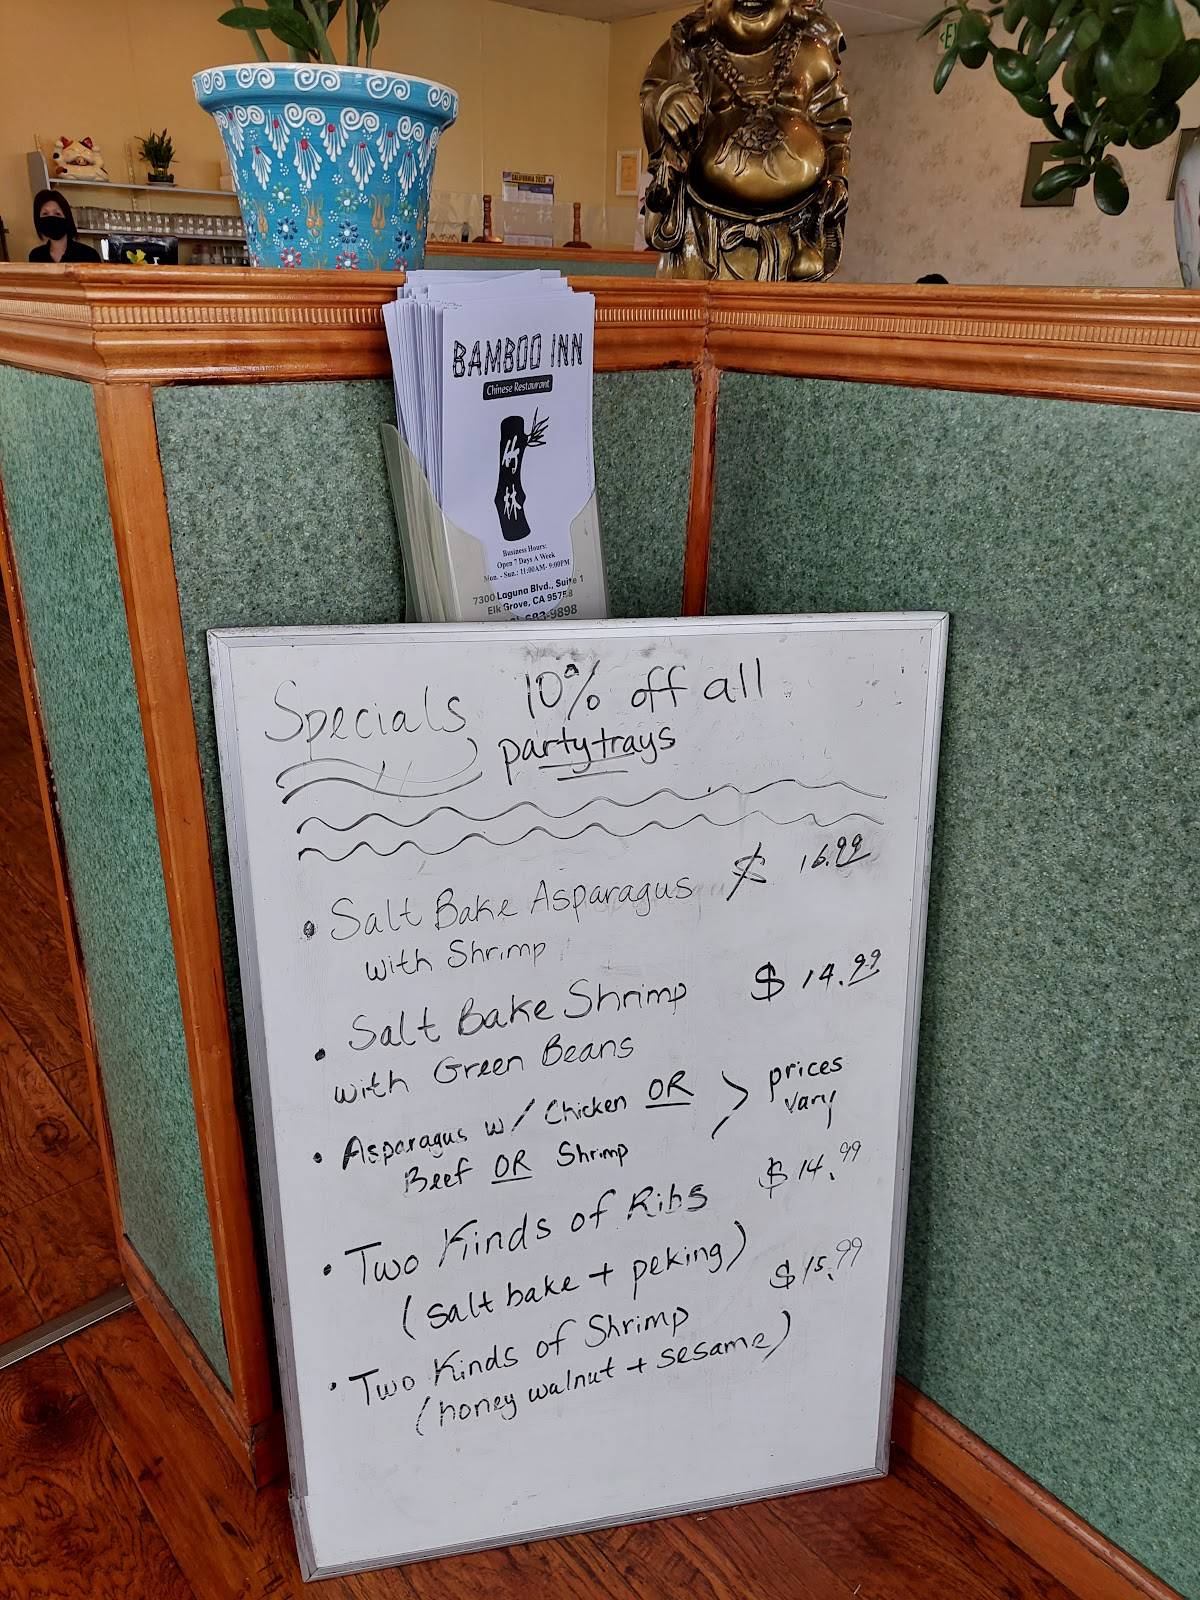 EX
CALIFORNIA 2023
BAMBOO INN
Chinese Restaurant
竹
林
Business Hours:
Open 7 Days A Week
Mon. - Sun.: 11:00AM- 9:00PM
7300 Laguna Blvd., Suite 1
Elk Grove, CA 95758
683-9898
Specials 10% off all
party trays
• Salt Bake Asparagus $ 16.99
with Shrimp
• Salt Bake Shrimp $ 14.99
with Green Beans
• Asparagus w/ Chicken OR > prices
Beef OR Shrimp vary
• Two Kinds of Ribs $14.99
(salt bake + peking)
• Two Kinds of Shrimp $15.99
(honey walnut + sesame)